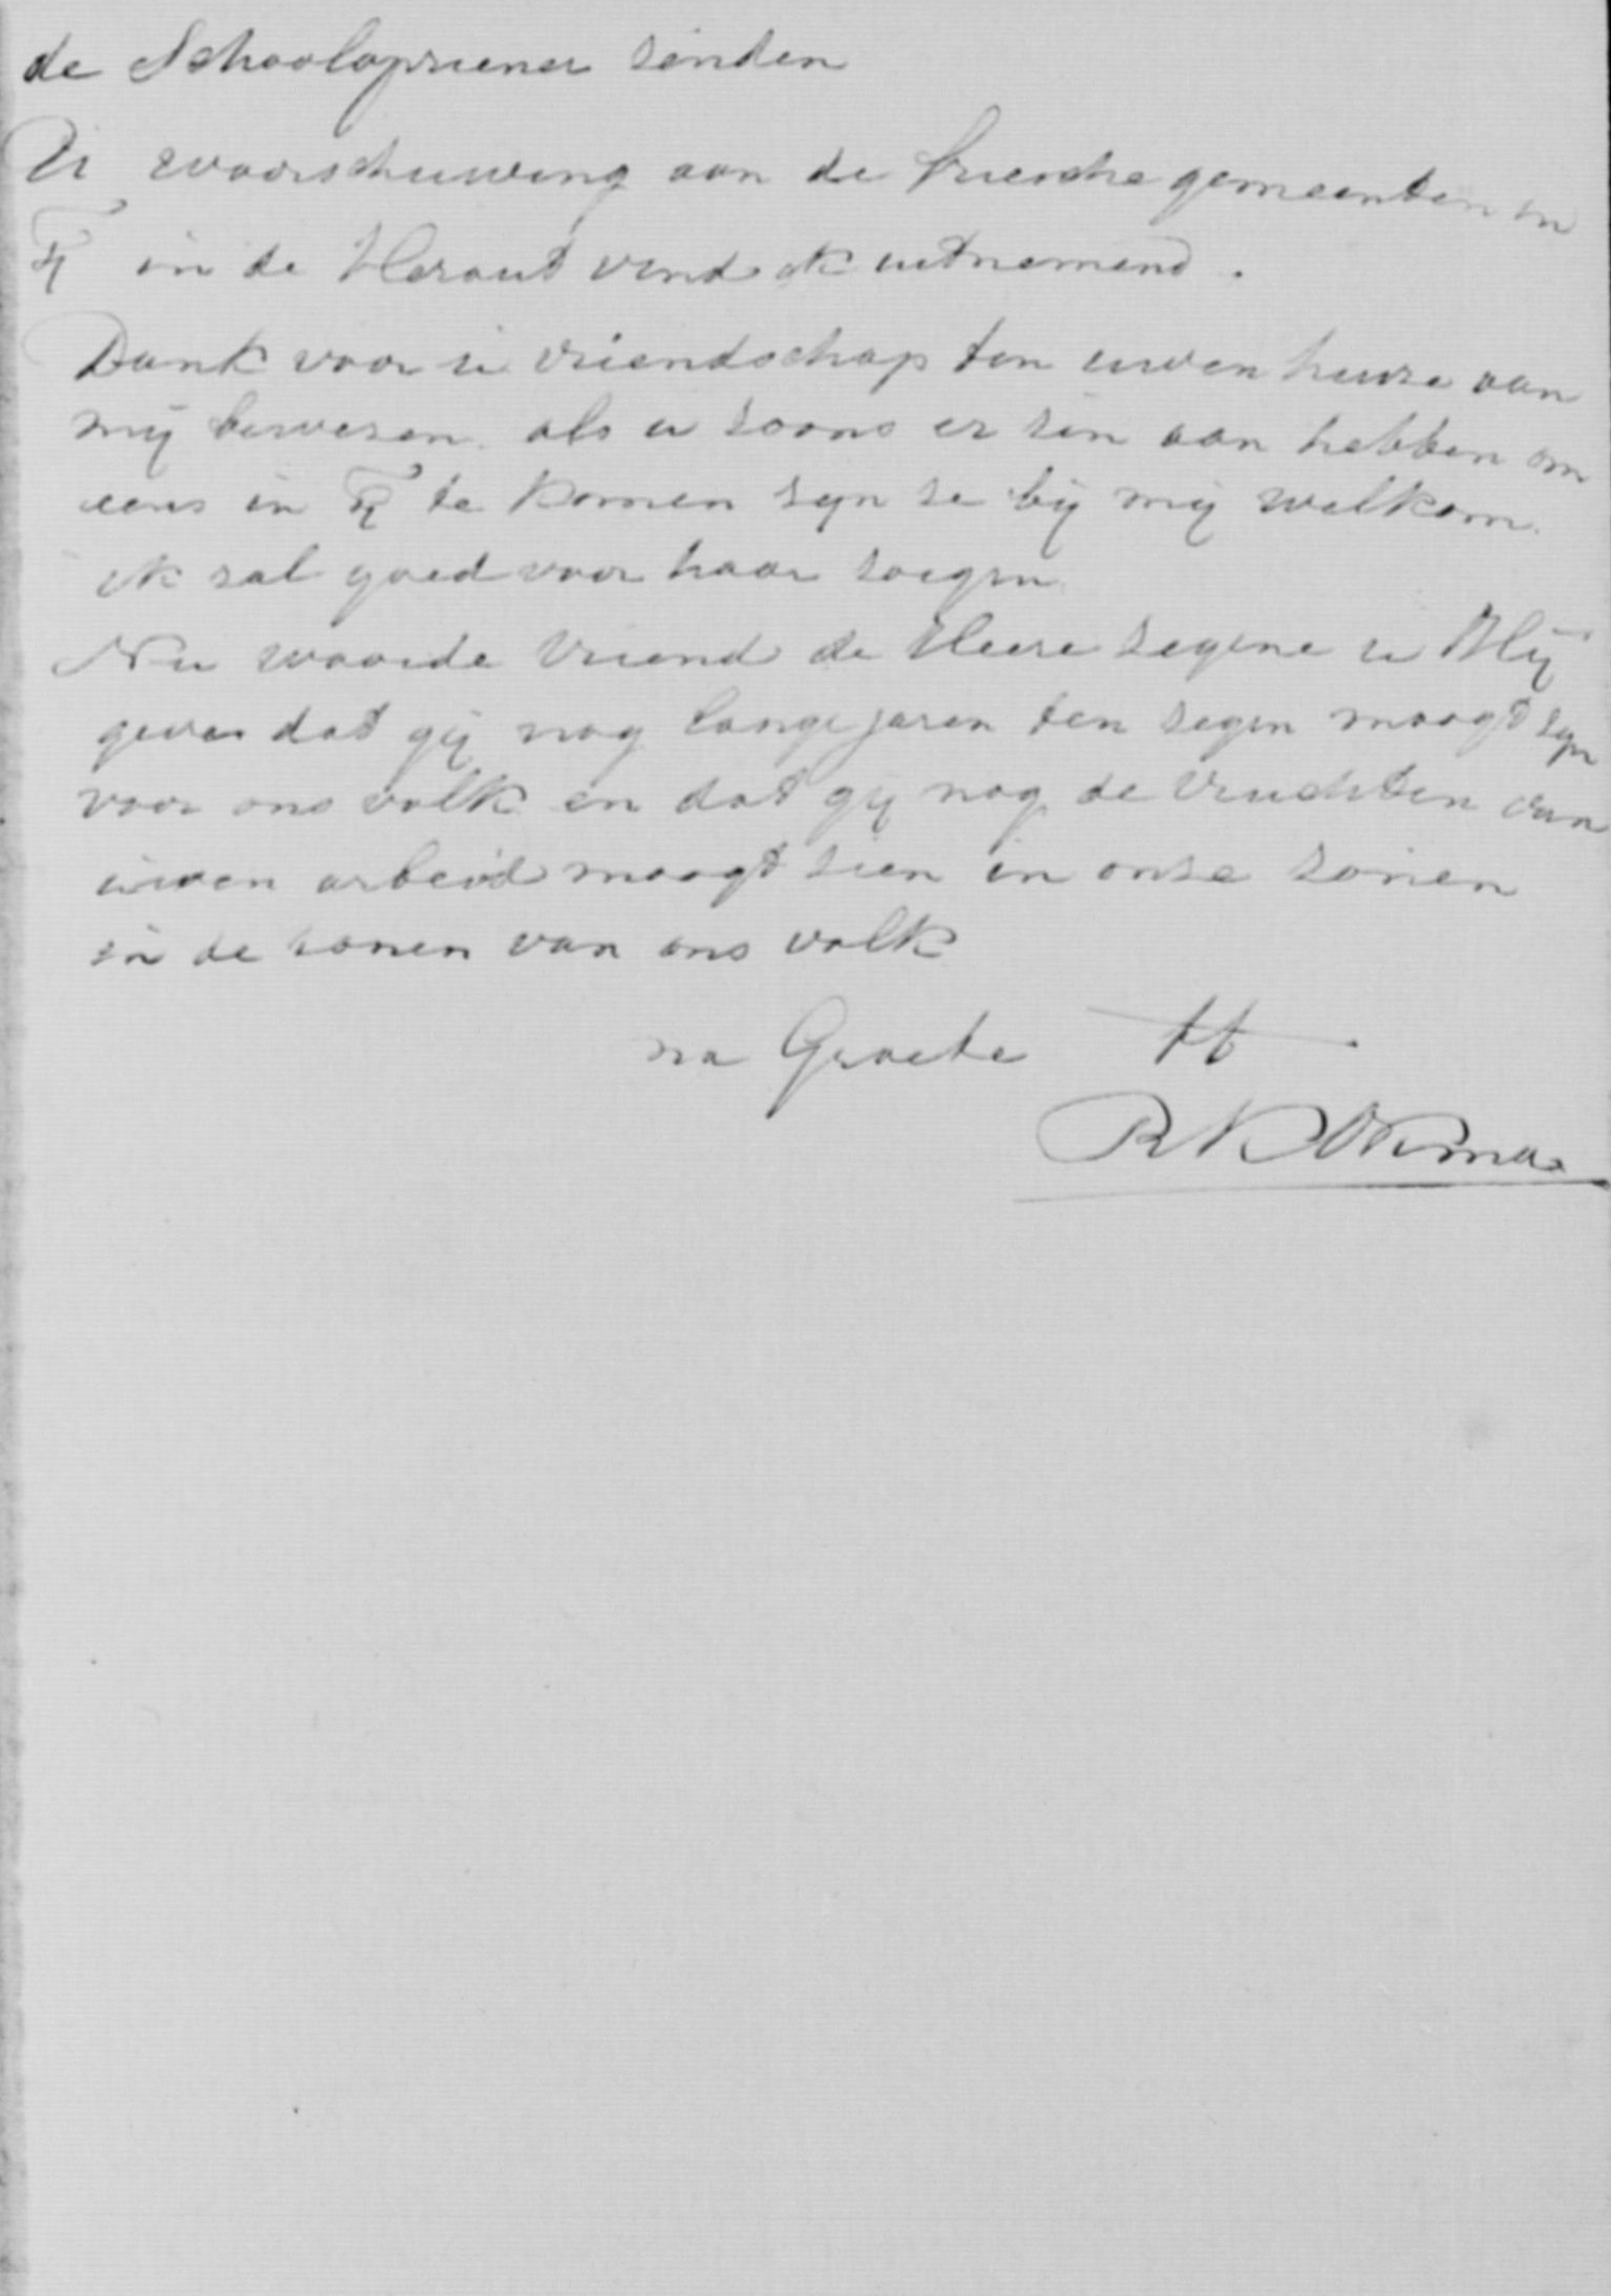 de Schoolopsiener senden
U waarschuwing aan de friesche gemeenten in
in de Heraut vind ik uitnemend.
Dank voor u vriendschap ten uwen huise aan
mij bewesen. als u soons er sin aan hebben om
eens in te komen syn se bij mij welkom.
ik sal goed voor haar sorgen
Nu waarde Vriend de Heere segene u Hij
geve dat gij nog lange jaren ten segen moogt syn
voor ons volk en dat gij nog de Vruchten van
uwen arbeid moogt sien in onse sonen
in de sonen van ons volk
na Groete tt.